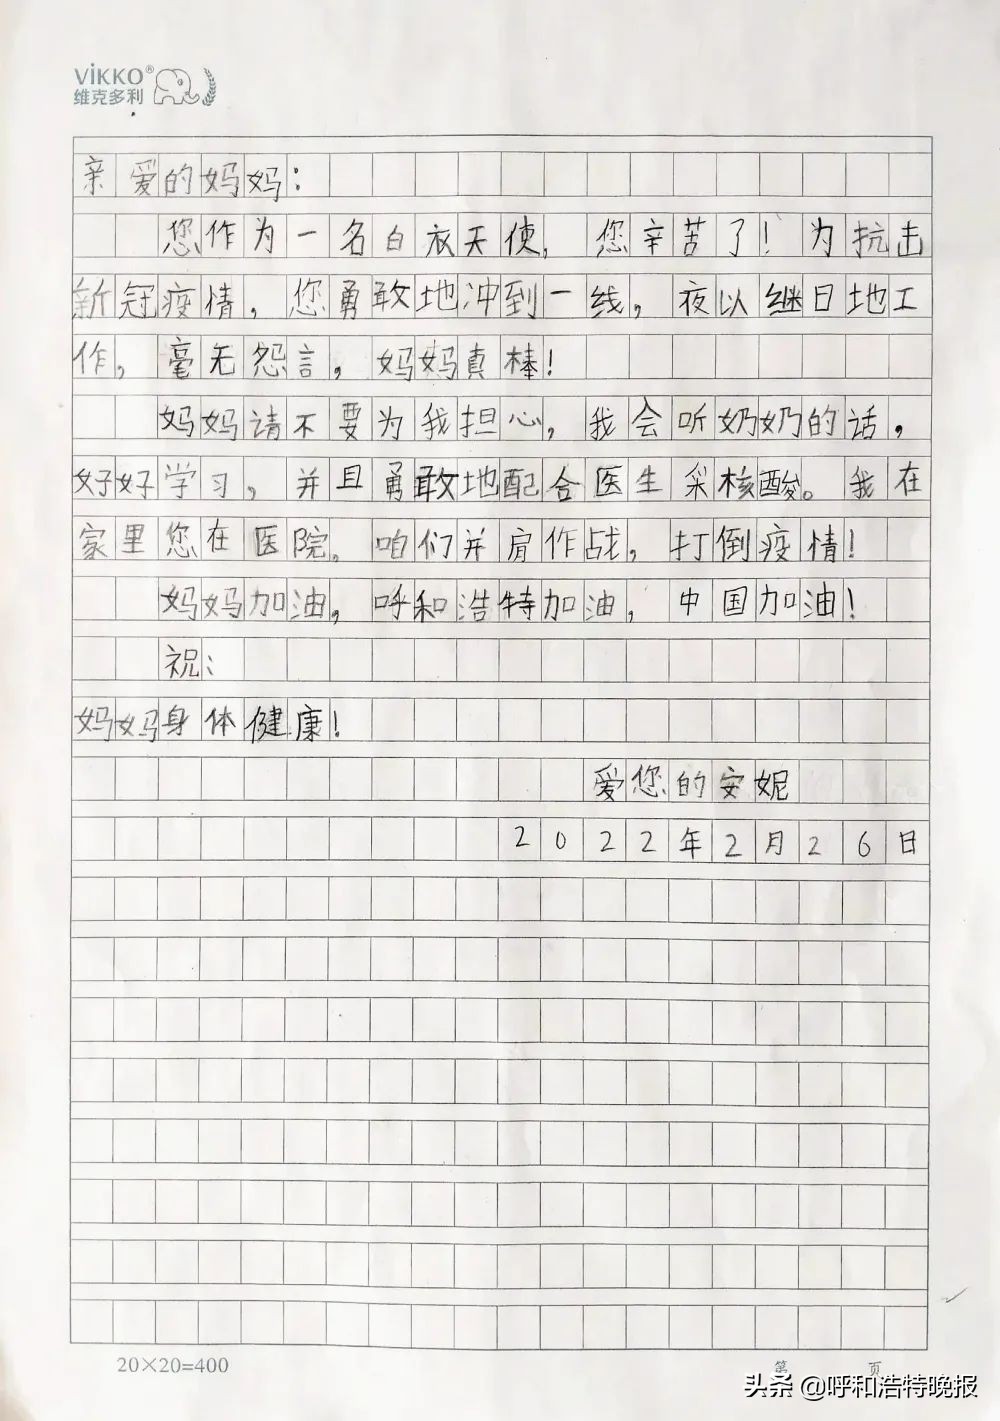 ViKKO®
维克多利
亲爱的妈妈：
您作为一名白衣天使，您辛苦了！为抗击
新冠疫情，您勇敢地冲到一线，夜以继日地工
作，毫无怨言，妈妈真棒！
妈妈请不要为我担心，我会听奶奶的话，
好好学习，并且勇敢地配合医生采核酸。我在
家里您在医院，咱们并肩作战，打倒疫情！
妈妈加油，呼和浩特加油，中国加油！
祝：
妈妈身体健康！
爱您的安妮
2022年2月26日
20×20=400
第 页
头条 @呼和浩特晚报